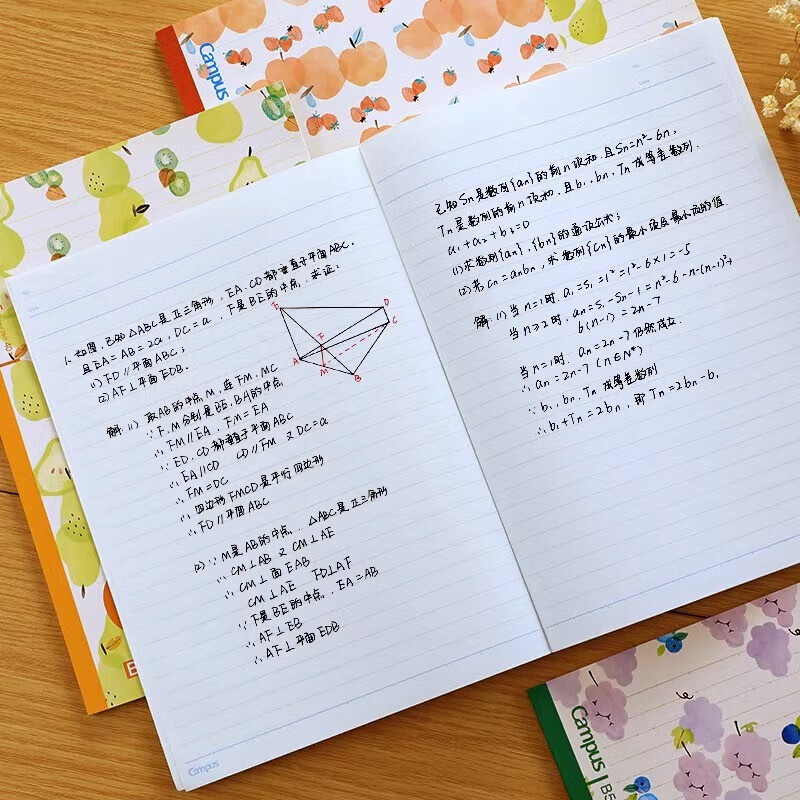 Campus
1. 如图,已知△ABC是正三角形,EA、CD都垂直于平面ABC,
且EA=AB=2a,DC=a,F是BE的中点,求证:
(1) FD∥平面ABC;
(2) AF⊥平面EDB.
E
D
C
F
A
M
B
解:(1) 取AB的中点M,连FM,MC
∵F、M分别是BE、BA的中点
∴FM∥EA,FM=EA
∵ED、CD都垂直于平面ABC
∴EA∥CD CD∥FM 又DC=a
∴FM=DC
∴四边形FMCD是平行四边形
∴FD∥平面ABC
(2) ∵M是AB的中点,△ABC是正三角形
∴CM⊥AB 又CM⊥AE
∴CM⊥面EAB
CM⊥AE FD⊥AF
∵F是BE的中点,EA=AB
∴AF⊥EB
∴AF⊥平面EDB
Campus
已知Sn是数列{an}的前n项和,且Sn=n²-6n,
Tn是数列的前n项和,且b₁、bn、Tn成等差数列.
a₁+a₂+b₂=0
(1)求数列{an},{bn}的通项公式;
(2)若cn=anbn,求数列{cn}的最小项及最小项的值.
解:(1) 当n=1时,a₁=S₁=1²=1²-6×1=-5
当n≥2时,an=Sn-Sn-1=n²-6-n-(n-1)²+
6(n-1)=2n-7
当n=1时,an=2n-7仍然成立.
∴an=2n-7 (n∈N*)
∵b₁、bn、Tn成等差数列
∴b₁+Tn=2bn,即Tn=2bn-b₁
Campus
B5